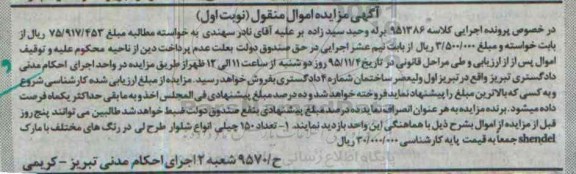 آگهی مزایده اموال منقول (نوبت اول)
در خصوص پرونده اجرایی کلاسه ۹۵۱۳۸۶ برله وحید سید زاده بر علیه آقای نادر سهندی به خواسته مطالبه مبلغ ۷۵/۹۱۷/۴۵۳ ریال از
بابت خواسته و مبلغ ۳/۵۰۰/۰۰۰ ریال از بابت نیم عشر اجرایی در حق صندوق دولت بعلت عدم پرداخت دین از ناحیه محکوم علیه و توقیف
اموال پس از ارزیابی و طی مراحل قانونی در تاریخ ۹۵/۱۱/۴ روز دوشنبه از ساعت ۱۱ الی ۱۲ ظهر از طریق مزایده در واحد اجرای احکام مدنی
دادگستری تبریز واقع در تبریز اول ولیعصر ساختمان شماره ۴ دادگستری بفروش خواهد رسید. مزایده از مبلغ ارزیابی شده کارشناسی شروع
و به کسی که بالاترین مبلغ را پیشنهاد نماید فروخته خواهد شد و ده درصد مبلغ پیشنهادی فی المجلس اخذ و به مابقی حداکثر یکماه فرصت
داده میشود. برنده مزایده به هر عنوان انصراف نماید ده درصد مبلغ پیشنهادی بنفع صندوق دولت ضبط خواهد شد طالبین می توانند پنج روز
قبل از مزایده از اموال بشرح ذیل با هماهنگی این واحد بازدید نمایند. ۱- تعداد ۱۵۰ چیلی انواع شلوار طرح لی در رنگ های مختلف با مارک
shendel جمعا به قیمت پایه کارشناسی ۳۰/۰۰۰/۰۰۰ ریال
ح/۹۵۷۰ شعبه ۲ اجرای احکام مدنی تبریز - کریمی